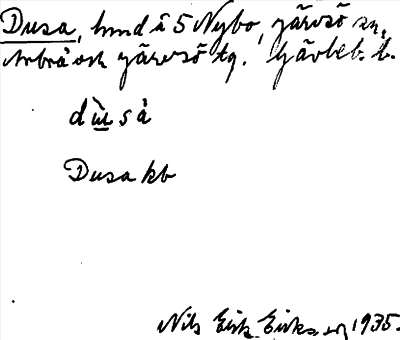 Dusa, hmd å 5 Nybo, Järvsö sn,
Arbrå och Järvsö tg. Gävleb. l.
dù̱så
Dusa kb
Nils Eric Eriksson 1935.